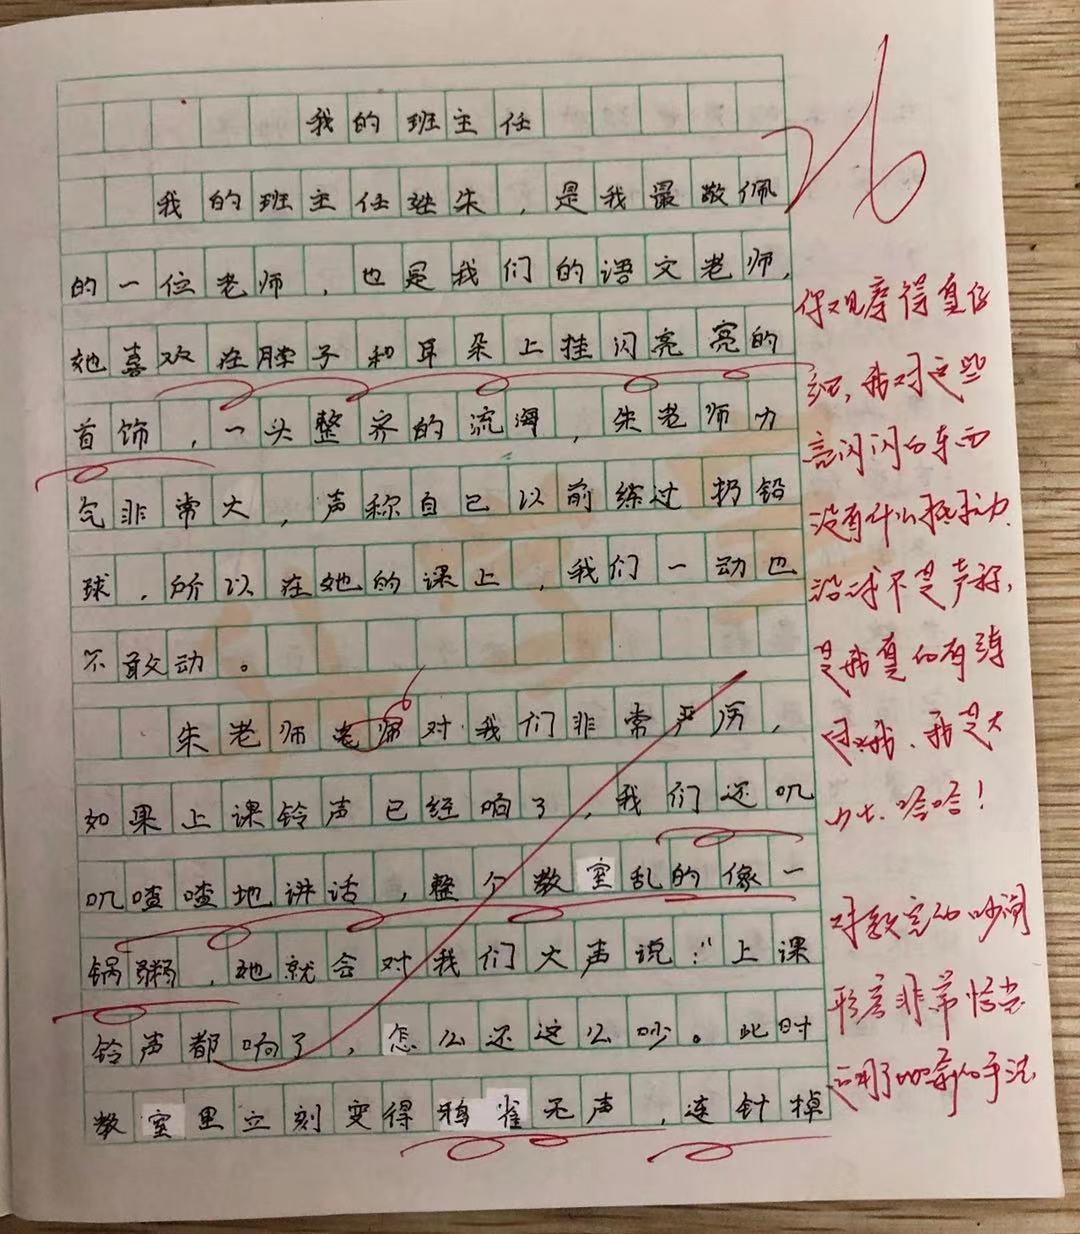 我的班主任
我的班主任姓朱，是我最敬佩
的一位老师，也是我们的语文老师，
她喜欢在脖子和耳朵上挂闪亮亮的
首饰，一头整齐的流海，朱老师力
气非常大，声称自己以前练过扔铅
球，所以在她的课上，我们一动也
不敢动。
朱老师老师对我们非常严厉，
如果上课铃声已经响了，我们还叽
叽喳喳地讲话，整个教室乱的像一
锅粥，她就会对我们大声说："上课
铃声都响了，怎么还这么吵。此时
教室里立刻变得鸦雀无声，连针掉
26
你观察得真仔
细，我对这些
亮闪闪的东西
没有什么抵抗力.
不是声称，
是我真的有练
过哦，我是大
力士.哈哈！
对教室的吵闹
形容非常恰当
运用了比喻的手法